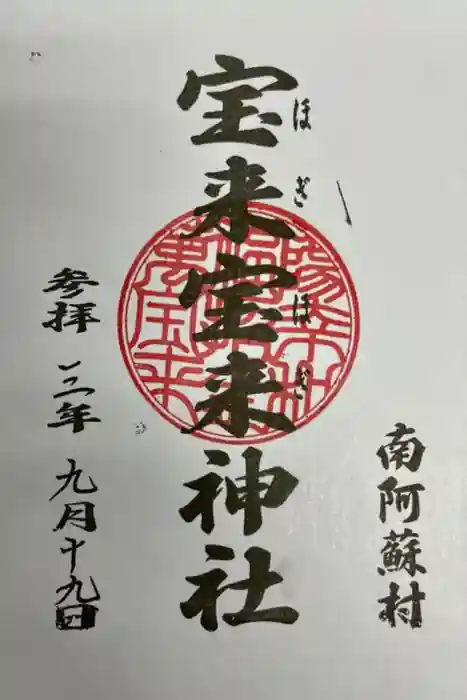 南阿蘇村
宝来宝来神社
ほぎほぎ
参拝 二二年 九月十九日